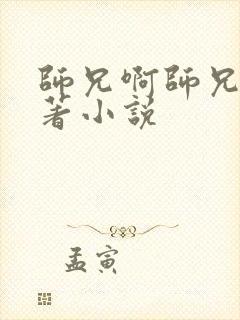 師兄啊師兄
著小説
孟寅